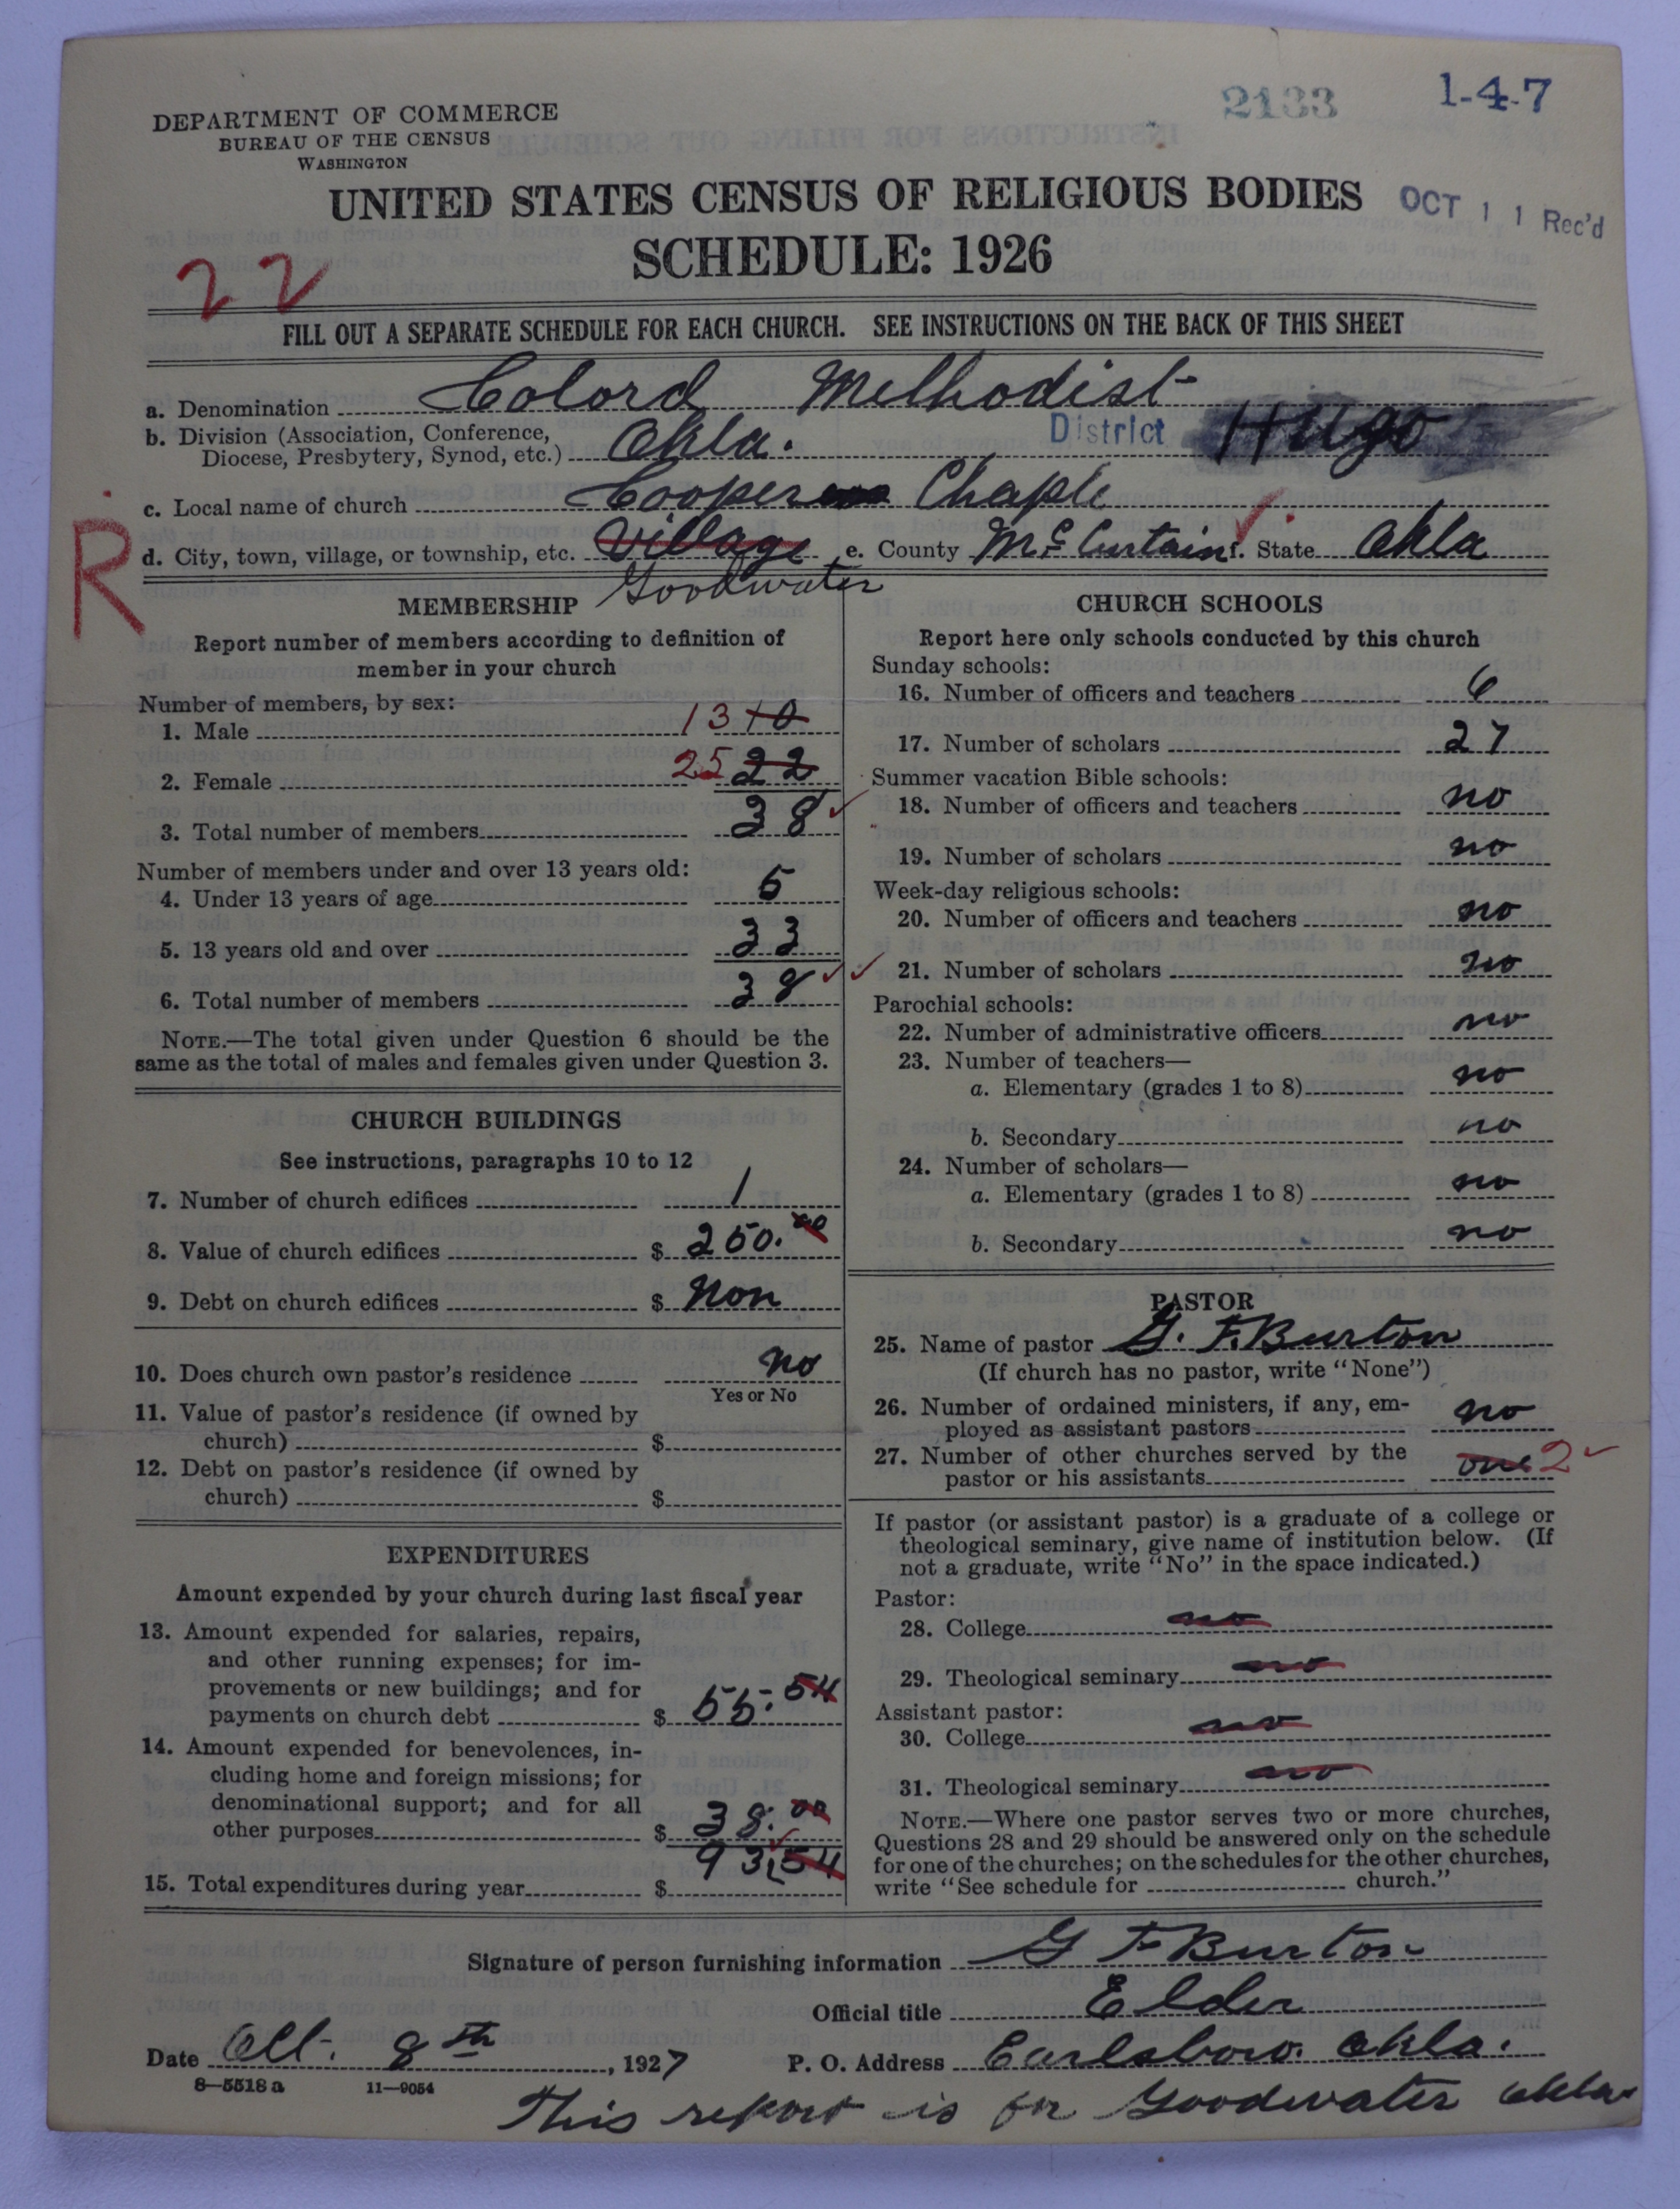 2133
1-4-7
DEPARTMENT OF COMMERCE
BUREAU OF THE CENSUS
WASHINGTON
UNITED STATES CENSUS OF RELIGIOUS BODIES
OCT 11 Rec'd
SCHEDULE: 1926
22
FILL OUT A SEPARATE SCHEDULE FOR EACH CHURCH. SEE INSTRUCTIONS ON THE BACK OF THIS SHEET
a. Denomination Colord Methodist
b. Division (Association, Conference, Diocese, Presbytery, Synod, etc.) Okla. District Hugo
c. Local name of church Cooper Chaple
R
d. City, town, village, or township, etc. Village e. County McCurtain f. State Okla
Goodwater
MEMBERSHIP
Report number of members according to definition of
member in your church
Number of members, by sex:
1. Male 13 10
2. Female 25 22
3. Total number of members 38
Number of members under and over 13 years old:
4. Under 13 years of age 5
5. 13 years old and over 33
6. Total number of members 38
NOTE.—The total given under Question 6 should be the
same as the total of males and females given under Question 3.
CHURCH BUILDINGS
See instructions, paragraphs 10 to 12
7. Number of church edifices 1
8. Value of church edifices $ 250.00
9. Debt on church edifices $ Non
10. Does church own pastor's residence no
Yes or No
11. Value of pastor's residence (if owned by
church) $
12. Debt on pastor's residence (if owned by
church) $
EXPENDITURES
Amount expended by your church during last fiscal year
13. Amount expended for salaries, repairs,
and other running expenses; for im-
provements or new buildings; and for
payments on church debt $ 55.54
14. Amount expended for benevolences, in-
cluding home and foreign missions; for
denominational support; and for all
other purposes $ 38.00
15. Total expenditures during year $ 93.54
CHURCH SCHOOLS
Report here only schools conducted by this church
Sunday schools:
16. Number of officers and teachers 6
17. Number of scholars 27
Summer vacation Bible schools:
18. Number of officers and teachers no
19. Number of scholars no
Week-day religious schools:
20. Number of officers and teachers no
21. Number of scholars no
Parochial schools:
22. Number of administrative officers no
23. Number of teachers—
a. Elementary (grades 1 to 8) no
b. Secondary no
24. Number of scholars—
a. Elementary (grades 1 to 8) no
b. Secondary no
PASTOR
25. Name of pastor G. F. Burton
(If church has no pastor, write "None")
26. Number of ordained ministers, if any, em-
ployed as assistant pastors no
27. Number of other churches served by the
pastor or his assistants one 2
If pastor (or assistant pastor) is a graduate of a college or
theological seminary, give name of institution below. (If
not a graduate, write "No" in the space indicated.)
Pastor:
28. College no
29. Theological seminary no
Assistant pastor:
30. College no
31. Theological seminary no
NOTE.—Where one pastor serves two or more churches,
Questions 28 and 29 should be answered only on the schedule
for one of the churches; on the schedules for the other churches,
write "See schedule for church."
Signature of person furnishing information G F Burton
Official title Elder
Date Oct. 8th, 1927 P. O. Address Earlsboro. Okla.
8—5518 a 11—9054
This report is for Goodwater Okla